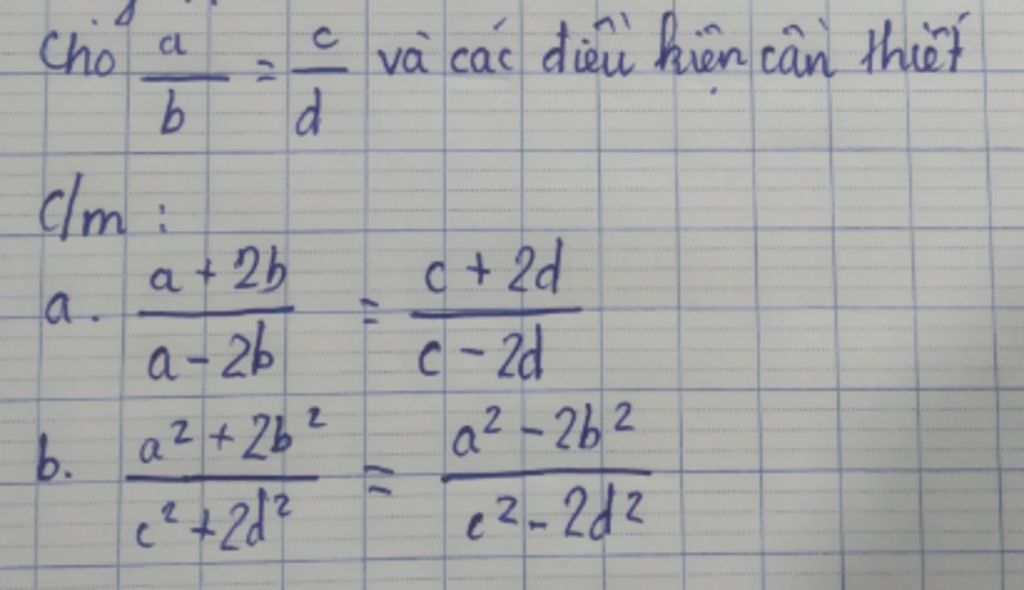 Cho a/b = c/d và các điều kiện cần thiết
C/m :
a. (a + 2b)/(a - 2b) = (c + 2d)/(c - 2d)
b. (a² + 2b²)/(c² + 2d²) = (a² - 2b²)/(c² - 2d²)